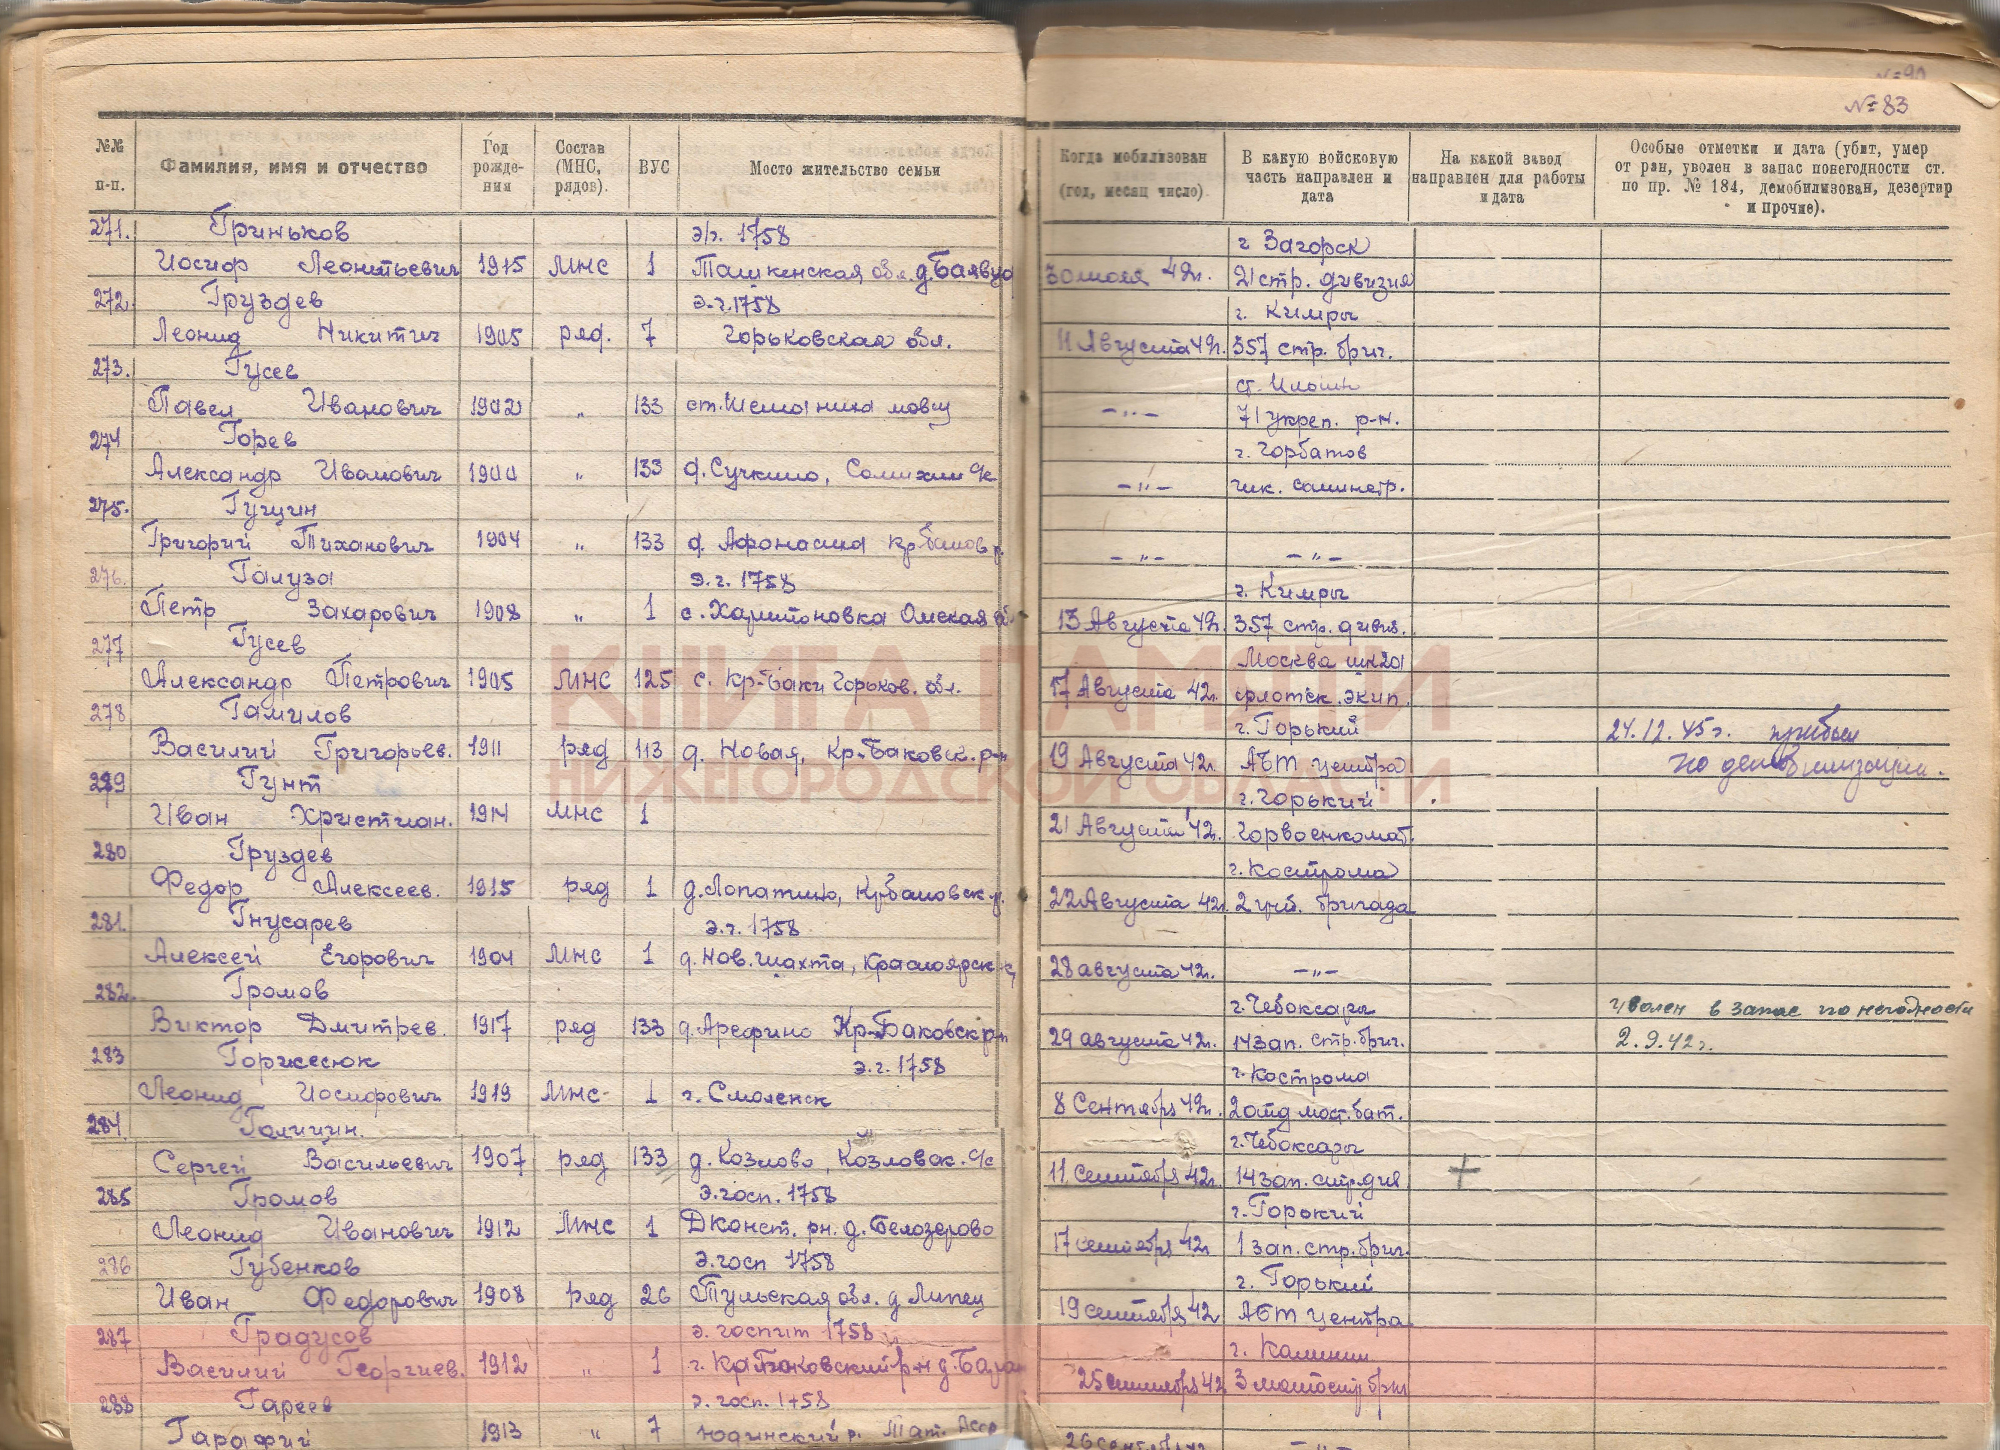 № 90
№ 83
№№ п-п.
Фамилия, имя и отчество
Год рожде-ния
Состав (МНС, рядов).
ВУС
Мосто жительство семьи
Когда мобилизован (год, месяц число).
В какую войсковую часть направлен и дата
На какой завод направлен для работы и дата
Особые отметки и дата (убит, умер от ран, уволен в запас понегодности ст. по пр. № 184, демобилизован, дезертир и прочие).
271. Гриньков э/г. 1758 г Загорск
Иосиф Леонтьевич 1915 МНС 1 Ташкенская обл. д. 30 июля 42г. 21 стр. дивизия
272. Груздев э.г. 1758 г. Кимры
Леонид Никитич 1905 ряд. 7 Горьковская обл. 11 Августа 42г. 357 стр. бриг.
273. Гусев ст.
Павел Иванович 1902 " 133 ст. Шеманиха -"- 71 укреп. р-н.
274 Горев г. Горбатов
Александр Иванович 1900 " 133 д. Сучкино, -"-
275. Гущин
Григорий Тиханович 1904 " 133 д. Афонасиха -"- -"-
276. Галуза э.г. 1758 г. Кимры
Петр Захарович 1908 " 1 с. Харитоновка Омская 13 Августа 42г. 357 стр. дивиз.
277 Гусев Москва
Александр Петрович 1905 МНС 125 с. Кр-Баки Горьков. обл. 17 Августа 42г. флотск. экип.
278 Гамилов г. Горький 24.12.45г. прибыл
Василий Григорьев. 1911 ряд 113 д. Новая, Кр-Баковск. р-н 19 Августа 42г. АБТ центра по демобилизации.
279 Гунт г. Горький
Иван Христиан. 1914 МНС 1 21 Августа 42г. Горвоенкомат.
280 Груздев г. Кострома
Федор Алексеев. 1915 ряд 1 д. Лопатино, 22 Августа 42г. 2 бригада
281. Гнусарев э.г. 1758
Алексей Егорович 1904 МНС 1 д. Нов. шахта, Красноярск 28 августа 42г. -"-
282. Громов г. Чебоксары уволен в запас по негодности
Виктор Дмитрев. 1917 ряд 133 д. Арефино Кр-Баковск р-н 29 августа 42г. 14 зап. стр. бриг. 2.9.42г.
283 Горжесюк э.г. 1758 г. Кострома
Леонид Иосифович 1919 МНС- 1 г. Смоленск 8 Сентября 42г. 2 отд мост. бат.
284. Галицин. г. Чебоксары
Сергей Васильевич 1907 ряд 133 д. Козлово, Козловск. с/с 11 сентября 42г. 14 зап. стр. див +
285 Громов э. госп. 1758 г. Горький
Леонид Иванович 1912 МНС 1 Дконст. рн. д. Белозерово 17 сентября 42г 1 зап. стр. бриг.
286 Губенков э. госп 1758 г. Горький
Иван Федорович 1908 ряд 26 Тульская обл. д Липец 19 сентября 42г. АБТ центра
287 Градусов э. госпит 1758 г. Калинин
Василий Георгиев. 1912 " 1 р-н д. 25 сентября 42 3 мотостр бриг
288 Гареев э. госп. 1758
Гарафий 1913 " 7 Юдинский р. Тат. Асср 26 сентября -"-
КНИГА ПАМЯТИ
НИЖЕГОРОДСКОЙ ОБЛАСТИ